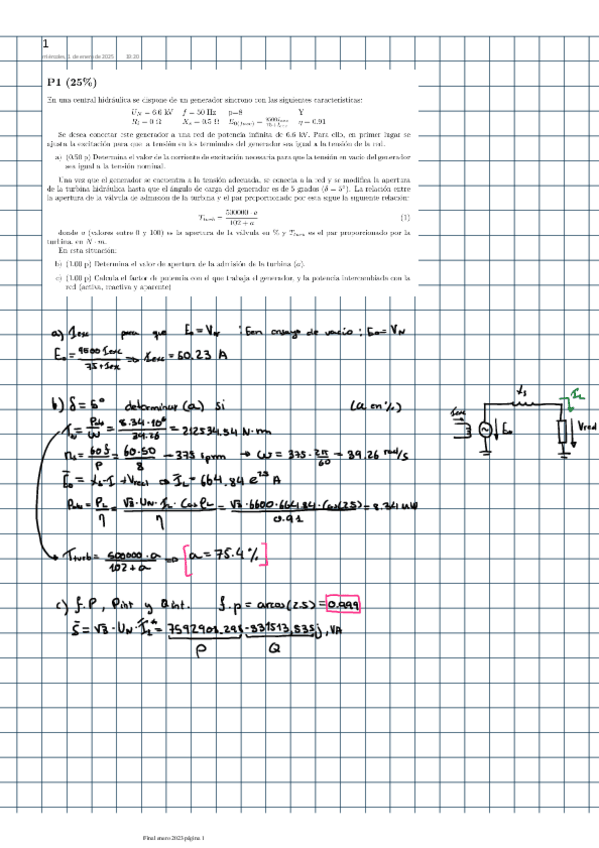 1
miércoles, 1 de enero de 2025 10:20
P1 (25%)
En una central hidráulica se dispone de un generador síncrono con las siguientes características:
U_N = 6.6 kV f = 50 Hz p=8 Y
η = 0.91
Se desea conectar este generador a una red de potencia infinita de 6.6 kV. Para ello, en primer lugar se
ajusta la excitación para que a tensión en los terminales del generador sea igual a la tensión de la red.
a) (0.50 p) Determina el valor de la corriente de excitación necesaria para que la tensión en vacío del generador
sea igual a la tensión nominal.
Una vez que el generador se encuentra a la tensión adecuada, se conecta a la red y se modifica la apertura
de la turbina hidráulica hasta que el ángulo de carga del generador es de 5 grados (δ = 5°). La relación entre
la apertura de la válvula de admisión de la turbina y el par proporcionado por esta sigue la siguiente relación:
T_turb = 500000 · a / 102 + a (1)
donde a (valores entre 0 y 100) es la apertura de la válvula en % y T_turb es el par proporcionado por la
turbina, en N · m.
En esta situación:
b) (1.00 p) Determina el valor de apertura de la admisión de la turbina (a).
c) (1.00 p) Calcula el factor de potencia con el que trabaja el generador, y la potencia intercambiada con la
red (activa, reactiva y aparente)
a) I exc para que E₀ = V : En ensayo de vacío : E₀ = V_N
E₀ = 9500 Iexc / 75 + Iexc => Iexc = 50.23 A
b) δ = 5° determinar (a) si (a en %)
= Pab / ω = 8.34·10⁶ / 39.26 = 212534.54 N·m
n_s = 60 f / P = 60·50 / 8 = 375 rpm → ω = 375 · 2π / 60 = 39.26 rad/s
E₀ = X_s · I + Vred => I_L = 664.84 e^2.5 A
= P_L / η = √3 · U_N · I_L · cos φ_L / η = √3 · 6600 · 664.84 · cos(2.5) / 0.91 = 8.341 MW
T turb = 500000 · a / 102 + a => [a = 75.4 %]
c) f.P, Pint y Qint. f.p = arcos(2.5) = 0.999
S = √3 · U_N · I_L* = 7592901,298 - 331513,535j, VA
P Q
Iexc
E₀
Xs
I_L
Vred
Final enero 2023 página 1